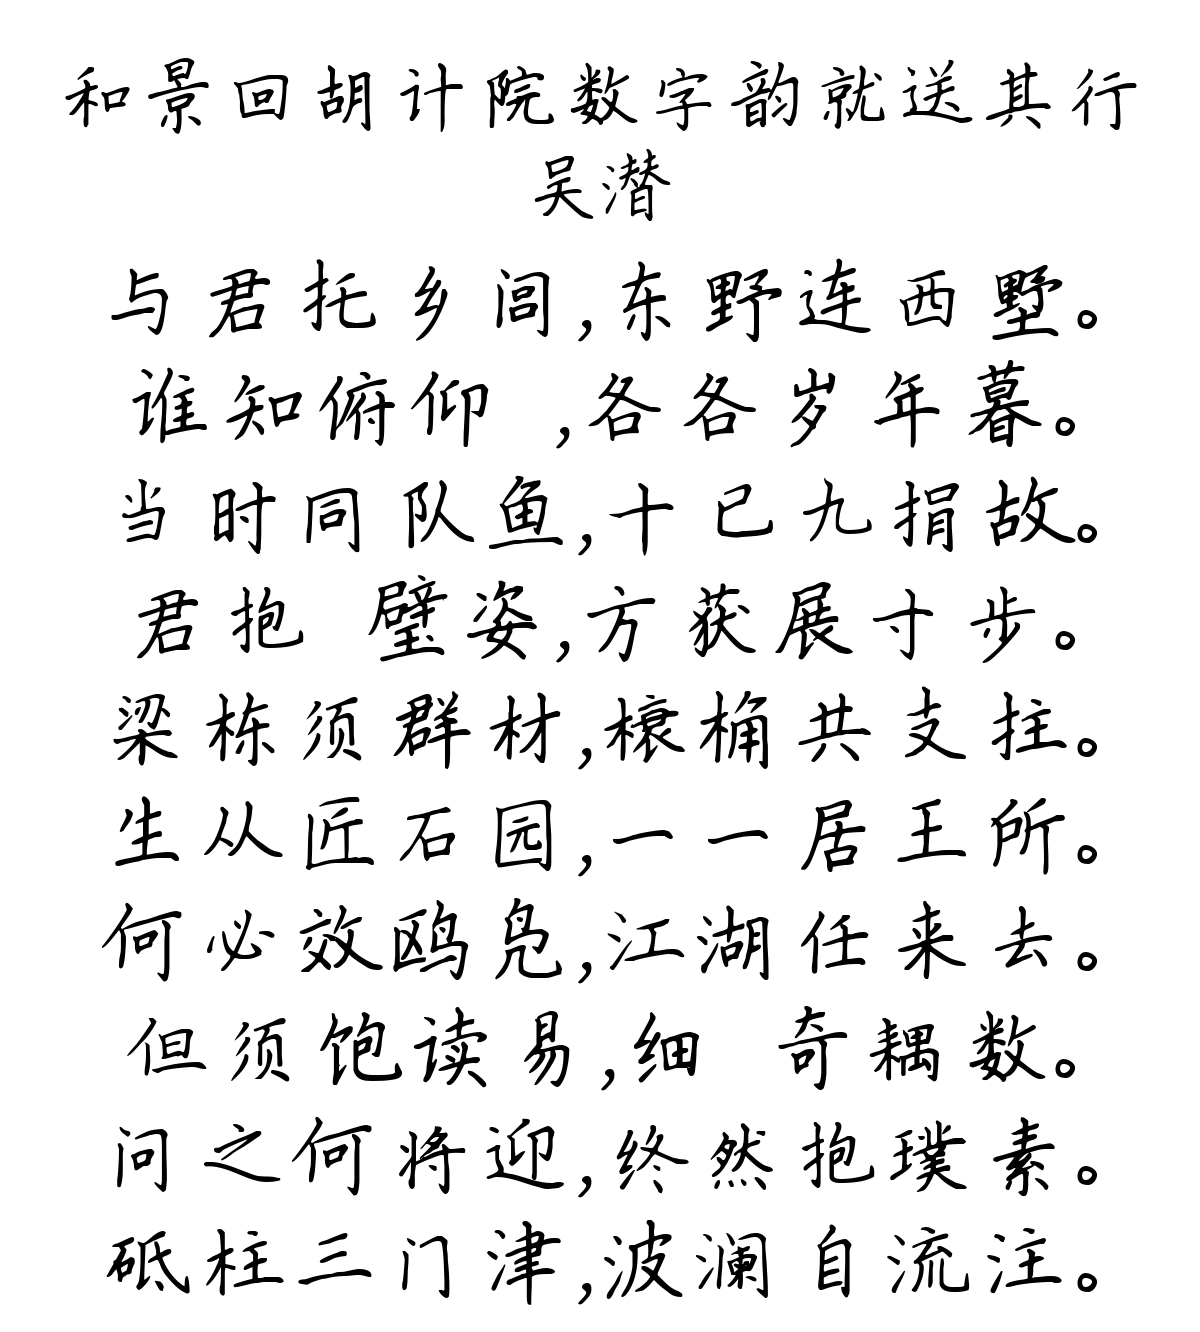 和景回胡计院数字韵就送其行
吴潜
与君托乡闾,东野连西墅。
谁知俯仰 ,各各岁年暮。
当时同队鱼,十已九捐故。
君抱 璧姿,方获展寸步。
梁栋须群材,榱桷共支拄。
生从匠石园,一一居王所。
何必效鸥凫,江湖任来去。
但须饱读易,细 奇耦数。
问之何将迎,终然抱璞素。
砥柱三门津,波澜自流注。